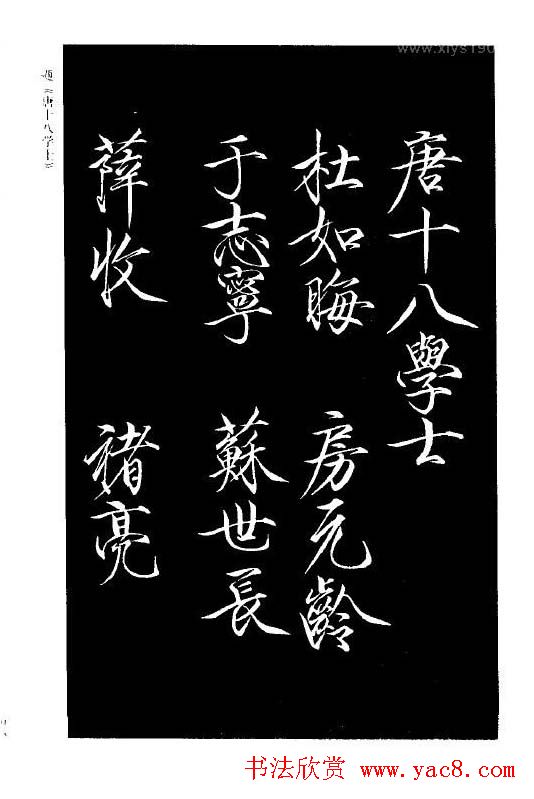 唐十八學士
杜如晦 房元齡
于志寧 蘇世長
薛收 褚亮
題《唐十八学士》
书法欣赏 www.yac8.com